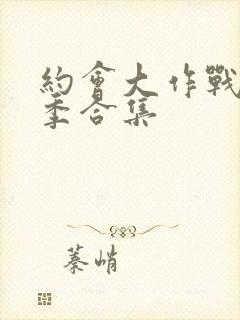 約會大作戰
季合集
蓁峭